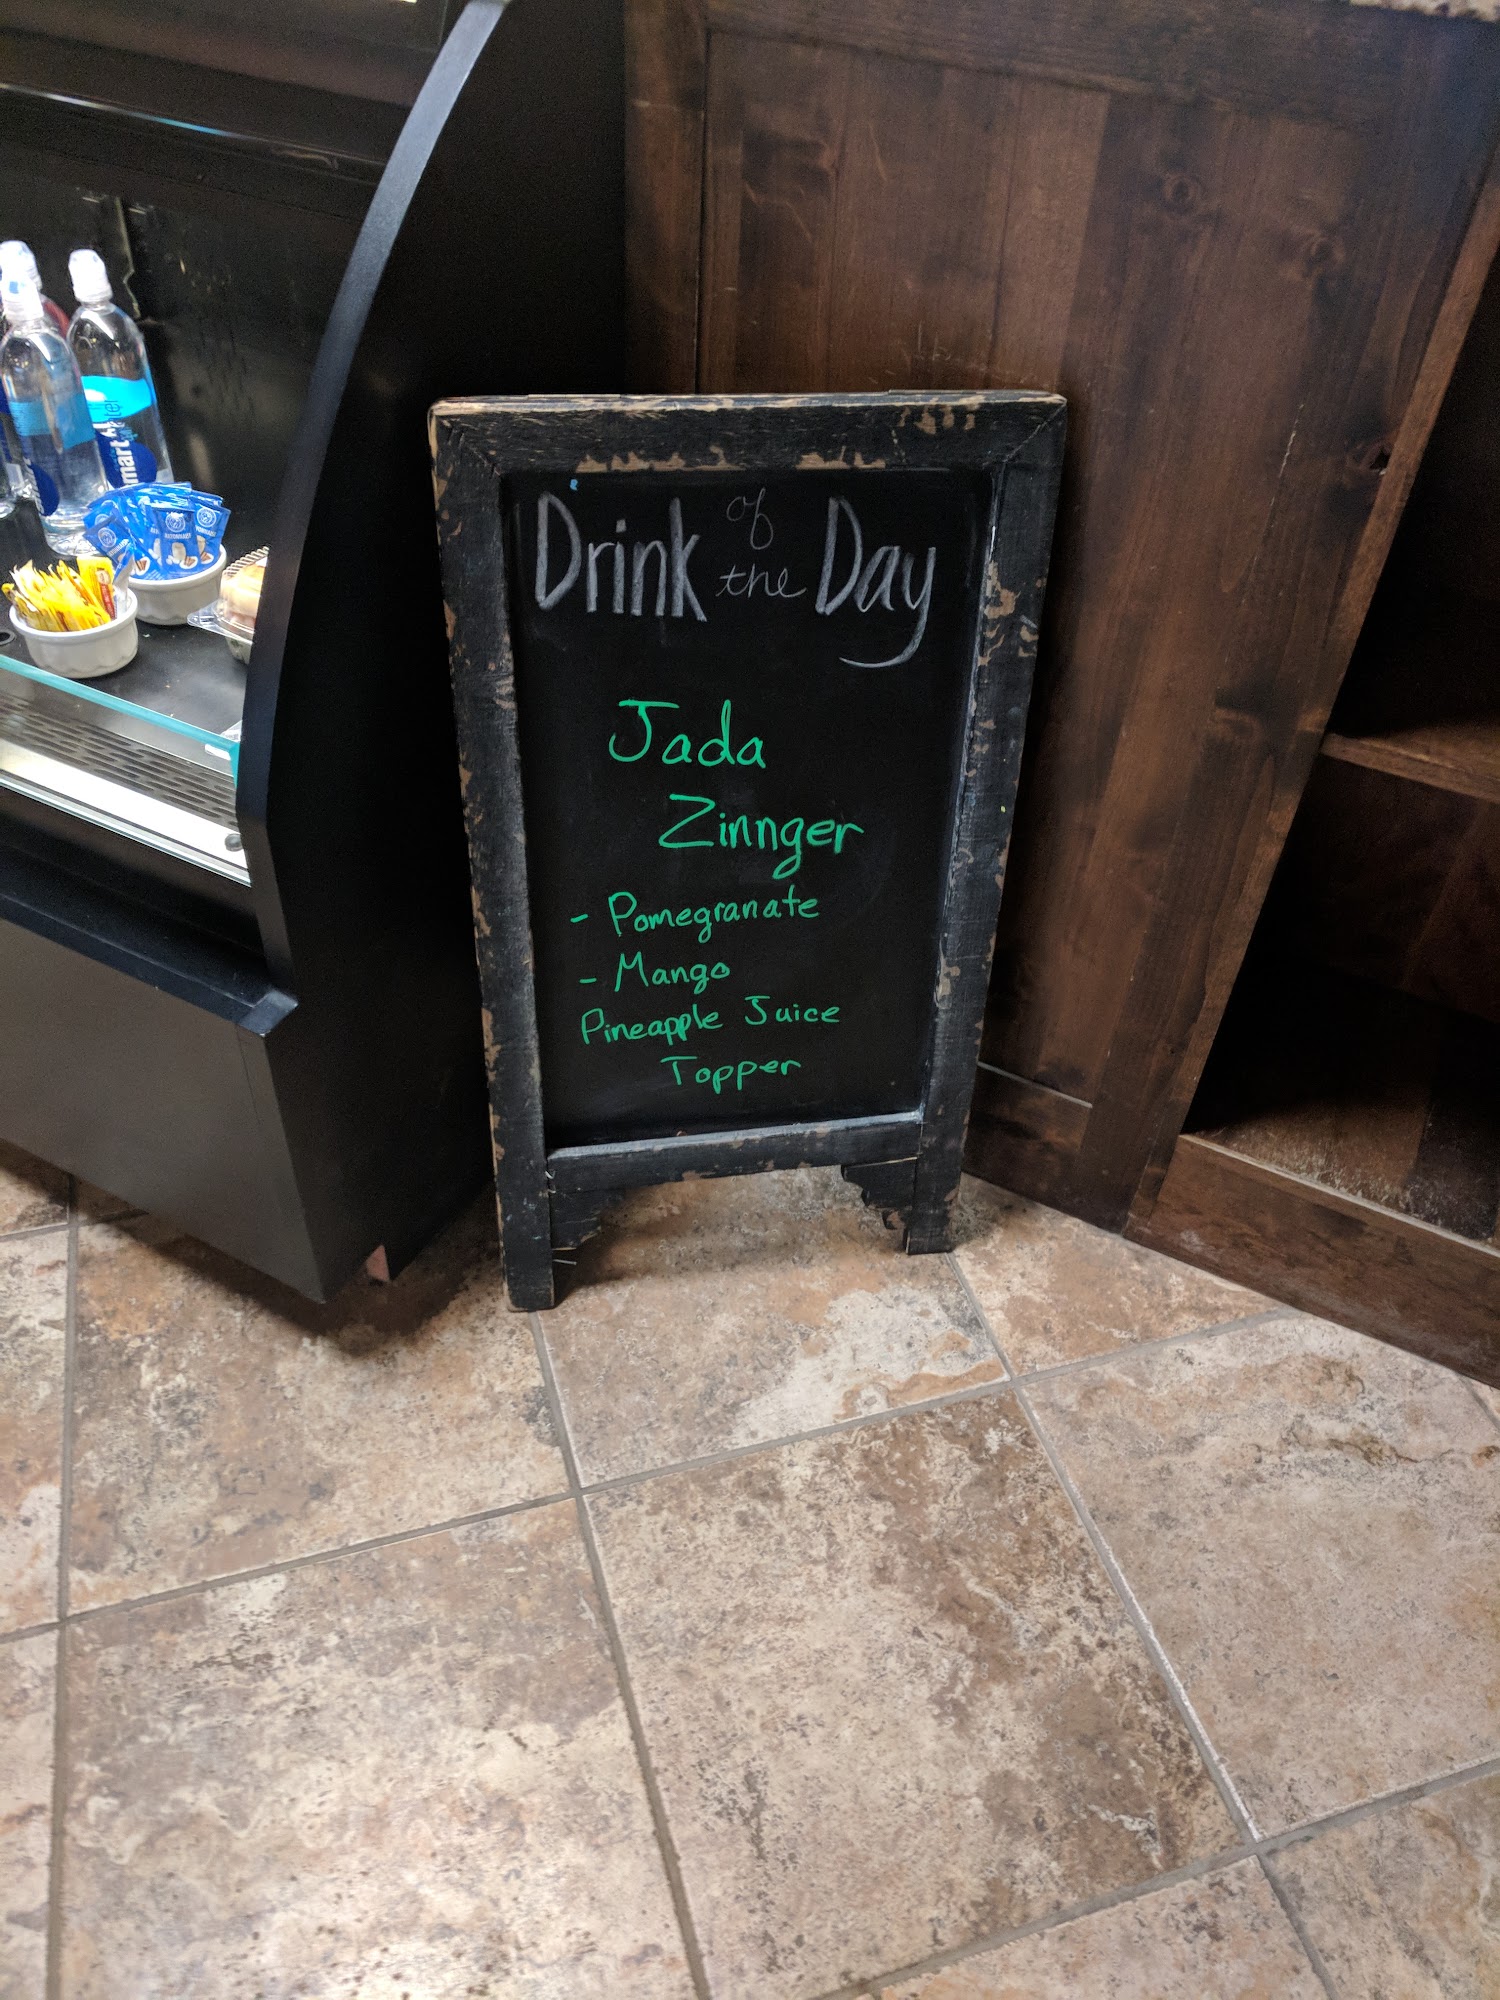 Drink of the Day
Jada
Zinnger
- Pomegranate
- Mango
Pineapple Juice
Topper